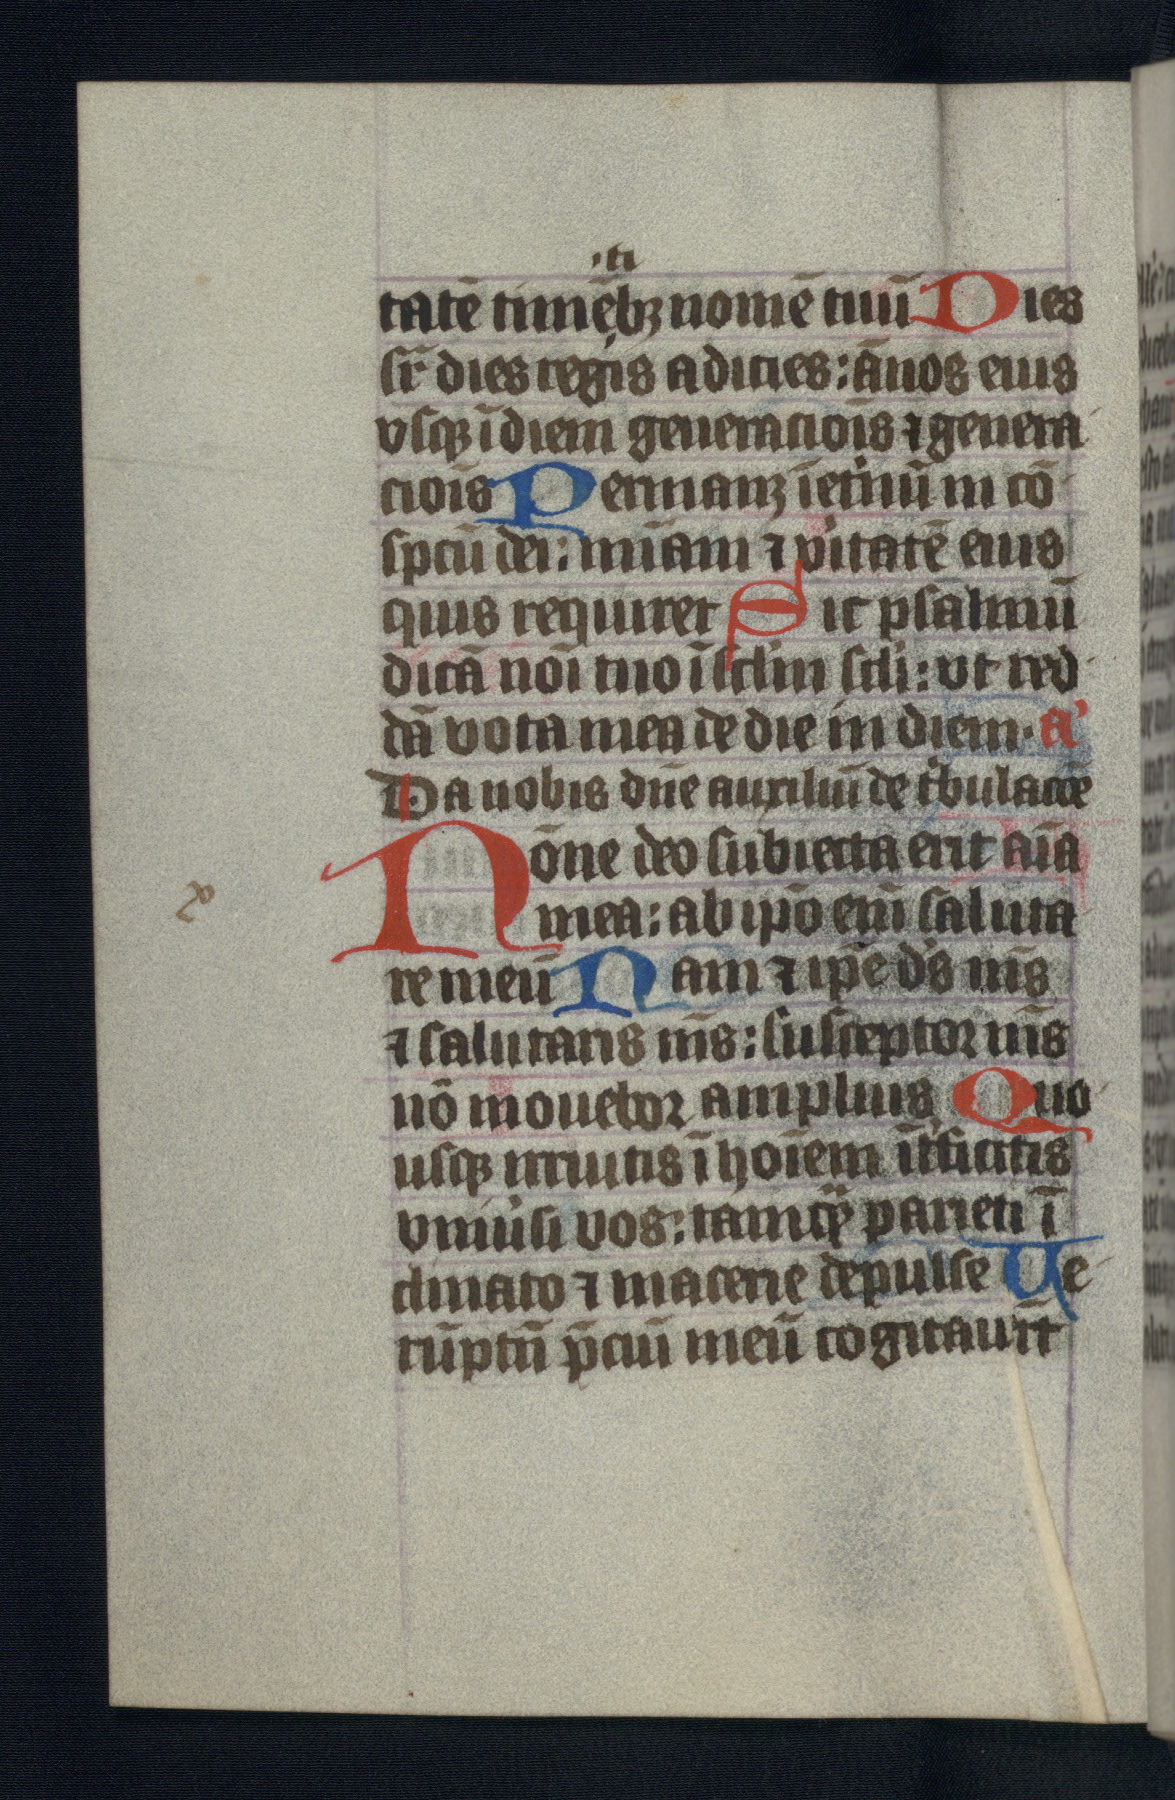 ·ti
tatē timēbꝫ nomē tuū Dies
sr̄ dies regis adicies: ānos eius
vsqꝫ ī diem generaciōis ⁊ genera
ciōis Permanꝫ ī et̓nū in cō
spc̄tū dei: mīam ⁊ v̓itatē eius
quis requiret Sic psalmū
dicā nōi tuo ī sc̄lm sc̄li: vt red
dā vota mea de die in diem· a̓
Da nobis dn̄e auxiliū de t̓bulacōe
Nōne deo subiecta erit aīa
mea: ab ip̄o em̄ saluta
re meū Nam ⁊ ip̄e d̓s m̄s
⁊ salutaris m̄s: susceptor m̄s
nō mouebor amplius Quo
usqꝫ irruitis ī hoīem īt̓ficitis
vniūsi vos: tamq̄ parieti ī
clinato ⁊ macerie depulse Ve
rūptn̄ p̄ciū meū cogitauīt